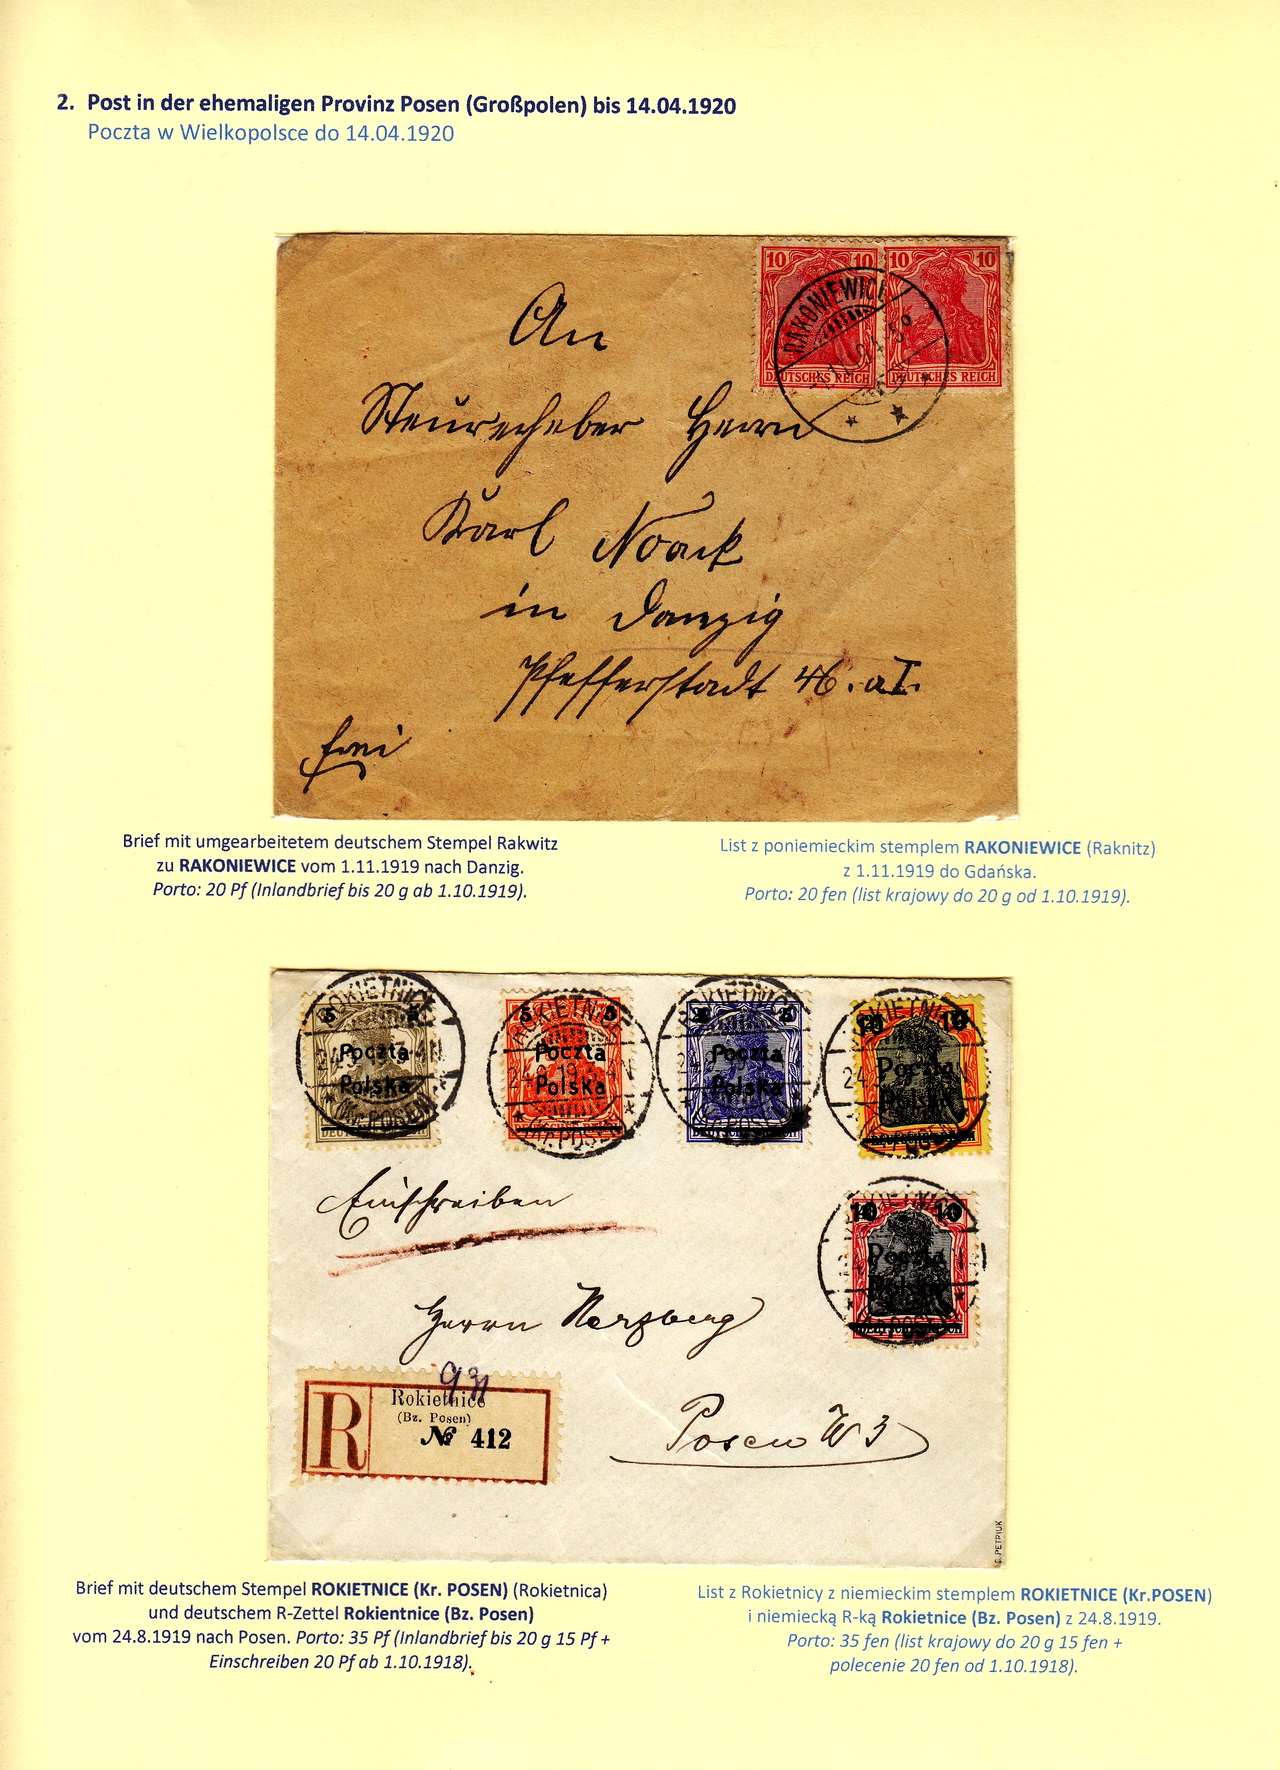 2. Post in der ehemaligen Provinz Posen (Großpolen) bis 14.04.1920
Poczta w Wielkopolsce do 14.04.1920
10 10 10 10
RAKONIEWICE
DEUTSCHES REICH DEUTSCHES REICH
An
Steuererheber Herrn
Karl Noack
in Danzig
Pfefferstadt 46. a I.
frei
Brief mit umgearbeitetem deutschem Stempel Rakwitz
zu RAKONIEWICE vom 1.11.1919 nach Danzig.
Porto: 20 Pf (Inlandbrief bis 20 g ab 1.10.1919).
List z poniemieckim stemplem RAKONIEWICE (Raknitz)
z 1.11.1919 do Gdańska.
Porto: 20 fen (list krajowy do 20 g od 1.10.1919).
ROKIETNICE ROKIETNICE ROKIETNICE ROKIETNICE
5 5 5 5 10 10
Poczta Poczta Poczta Poczta
Polska Polska Polska Polska
(Kr. POSEN) (Kr. POSEN)
Einschreiben
10 10
Poczta
Polska
Herrn Herzberg
931
R Rokietnice
(Bz. Posen)
№ 412
Posen W 3
S. PETRIUK
Brief mit deutschem Stempel ROKIETNICE (Kr. POSEN) (Rokietnica)
und deutschem R-Zettel Rokientnice (Bz. Posen)
vom 24.8.1919 nach Posen. Porto: 35 Pf (Inlandbrief bis 20 g 15 Pf +
Einschreiben 20 Pf ab 1.10.1918).
List z Rokietnicy z niemieckim stemplem ROKIETNICE (Kr.POSEN)
i niemiecką R-ką Rokietnice (Bz. Posen) z 24.8.1919.
Porto: 35 fen (list krajowy do 20 g 15 fen +
polecenie 20 fen od 1.10.1918).